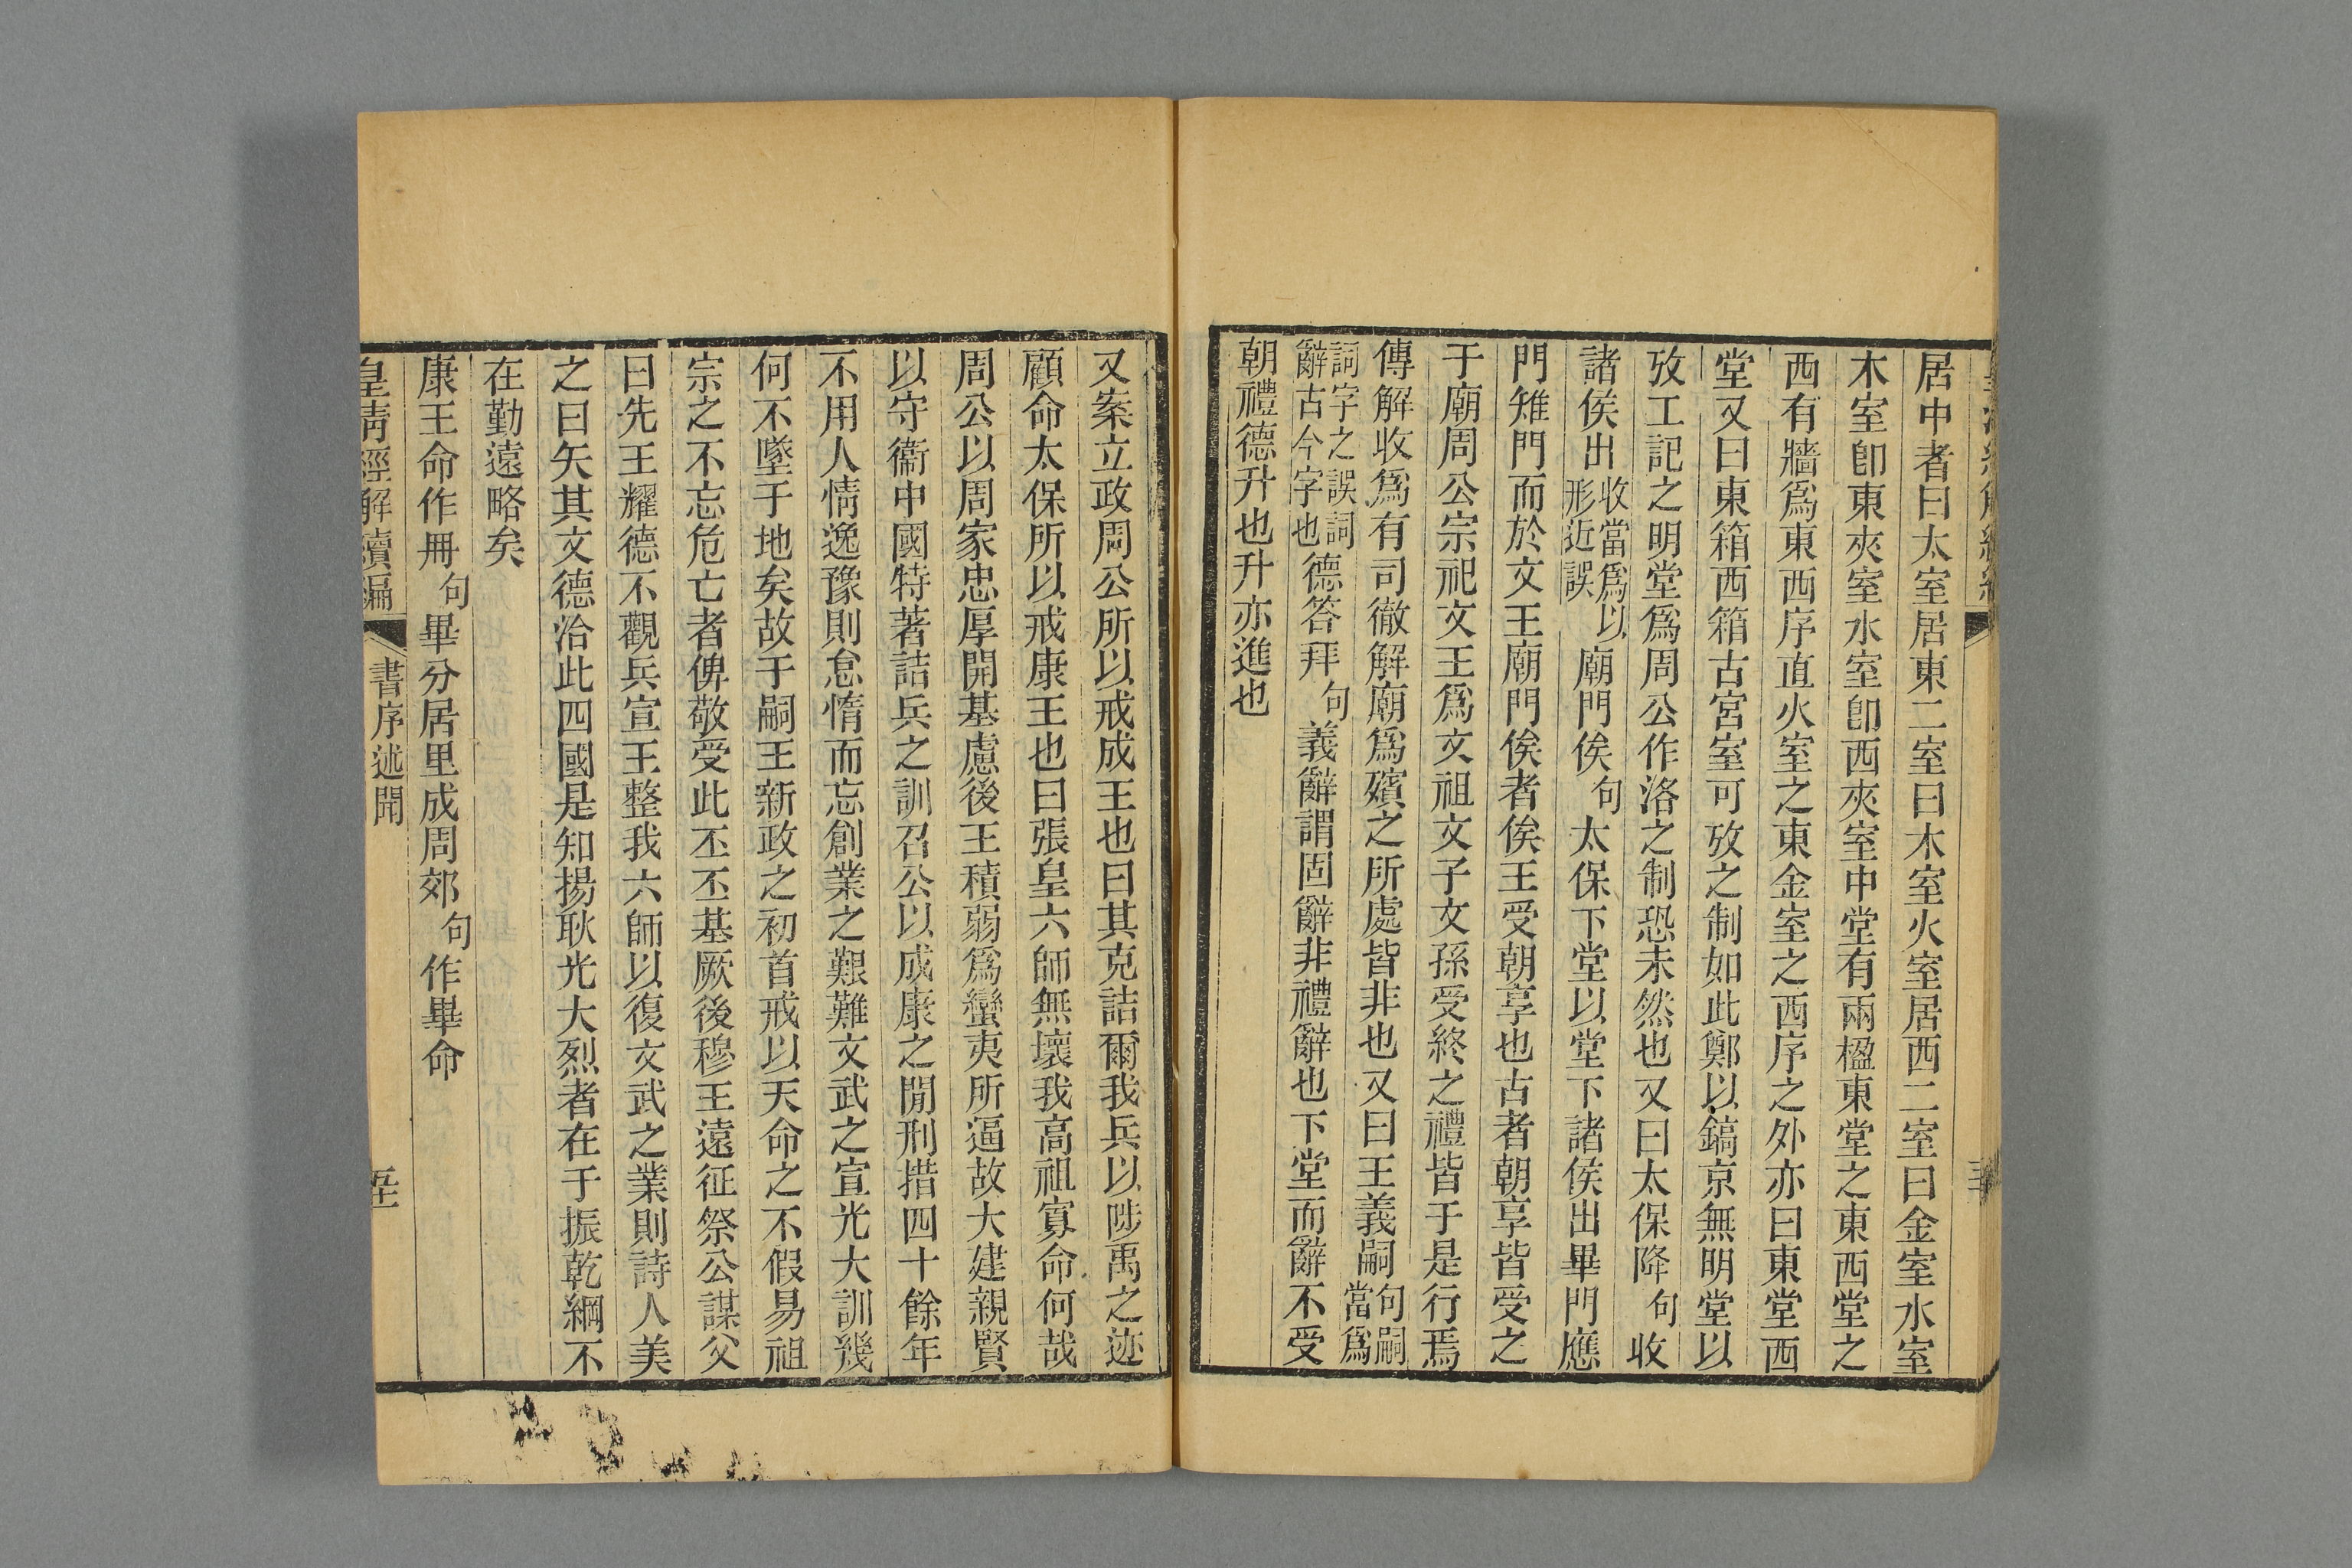 居中者曰太室居東二室曰木室火室居西二室曰金室水室
木室卽東夾室水室卽西夾室中堂有兩楹東堂之東西堂之
西有牆爲東西序直火室之東金室之西序之外亦曰東堂西
堂又曰東箱西箱古宮室可攷之制如此鄭以鎬京無明堂以
攷工記之明堂爲周公作洛之制恐未然也又曰太保降句收
諸侯出收當爲以形近誤廟門俟句太保下堂以堂下諸侯出畢門應
門雉門而於文王廟門俟者俟王受朝享也古者朝享皆受之
于廟周公宗祀文王爲文祖文子文孫受終之禮皆于是行焉
傳解收爲有司徹解廟爲殯之所處皆非也又曰王義嗣句嗣當爲
詞字之誤詞辭古今字也德答拜句義辭謂固辭非禮辭也下堂而辭不受
朝禮德升也升亦進也
又案立政周公所以戒成王也曰其克詰爾我兵以陟禹之迹
顧命太保所以戒康王也曰張皇六師無壞我高祖寡命何哉
周公以周家忠厚開基慮後王積弱爲蠻夷所逼故大建親賢
以守衞中國特著詰兵之訓召公以成康之閒刑措四十餘年
不用人情逸豫則怠惰而忘創業之艱難文武之宣光大訓幾
何不墜于地矣故于嗣王新政之初首戒以天命之不假易祖
宗之不忘危亡者俾敬受此丕丕基厥後穆王遠征祭公謀父
曰先王耀德不觀兵宣王整我六師以復文武之業則詩人美
之曰矢其文德洽此四國是知揚耿光大烈者在于振乾綱不
在勤遠略矣
康王命作冊句畢分居里成周郊句作畢命
皇清經解續編 書序述聞